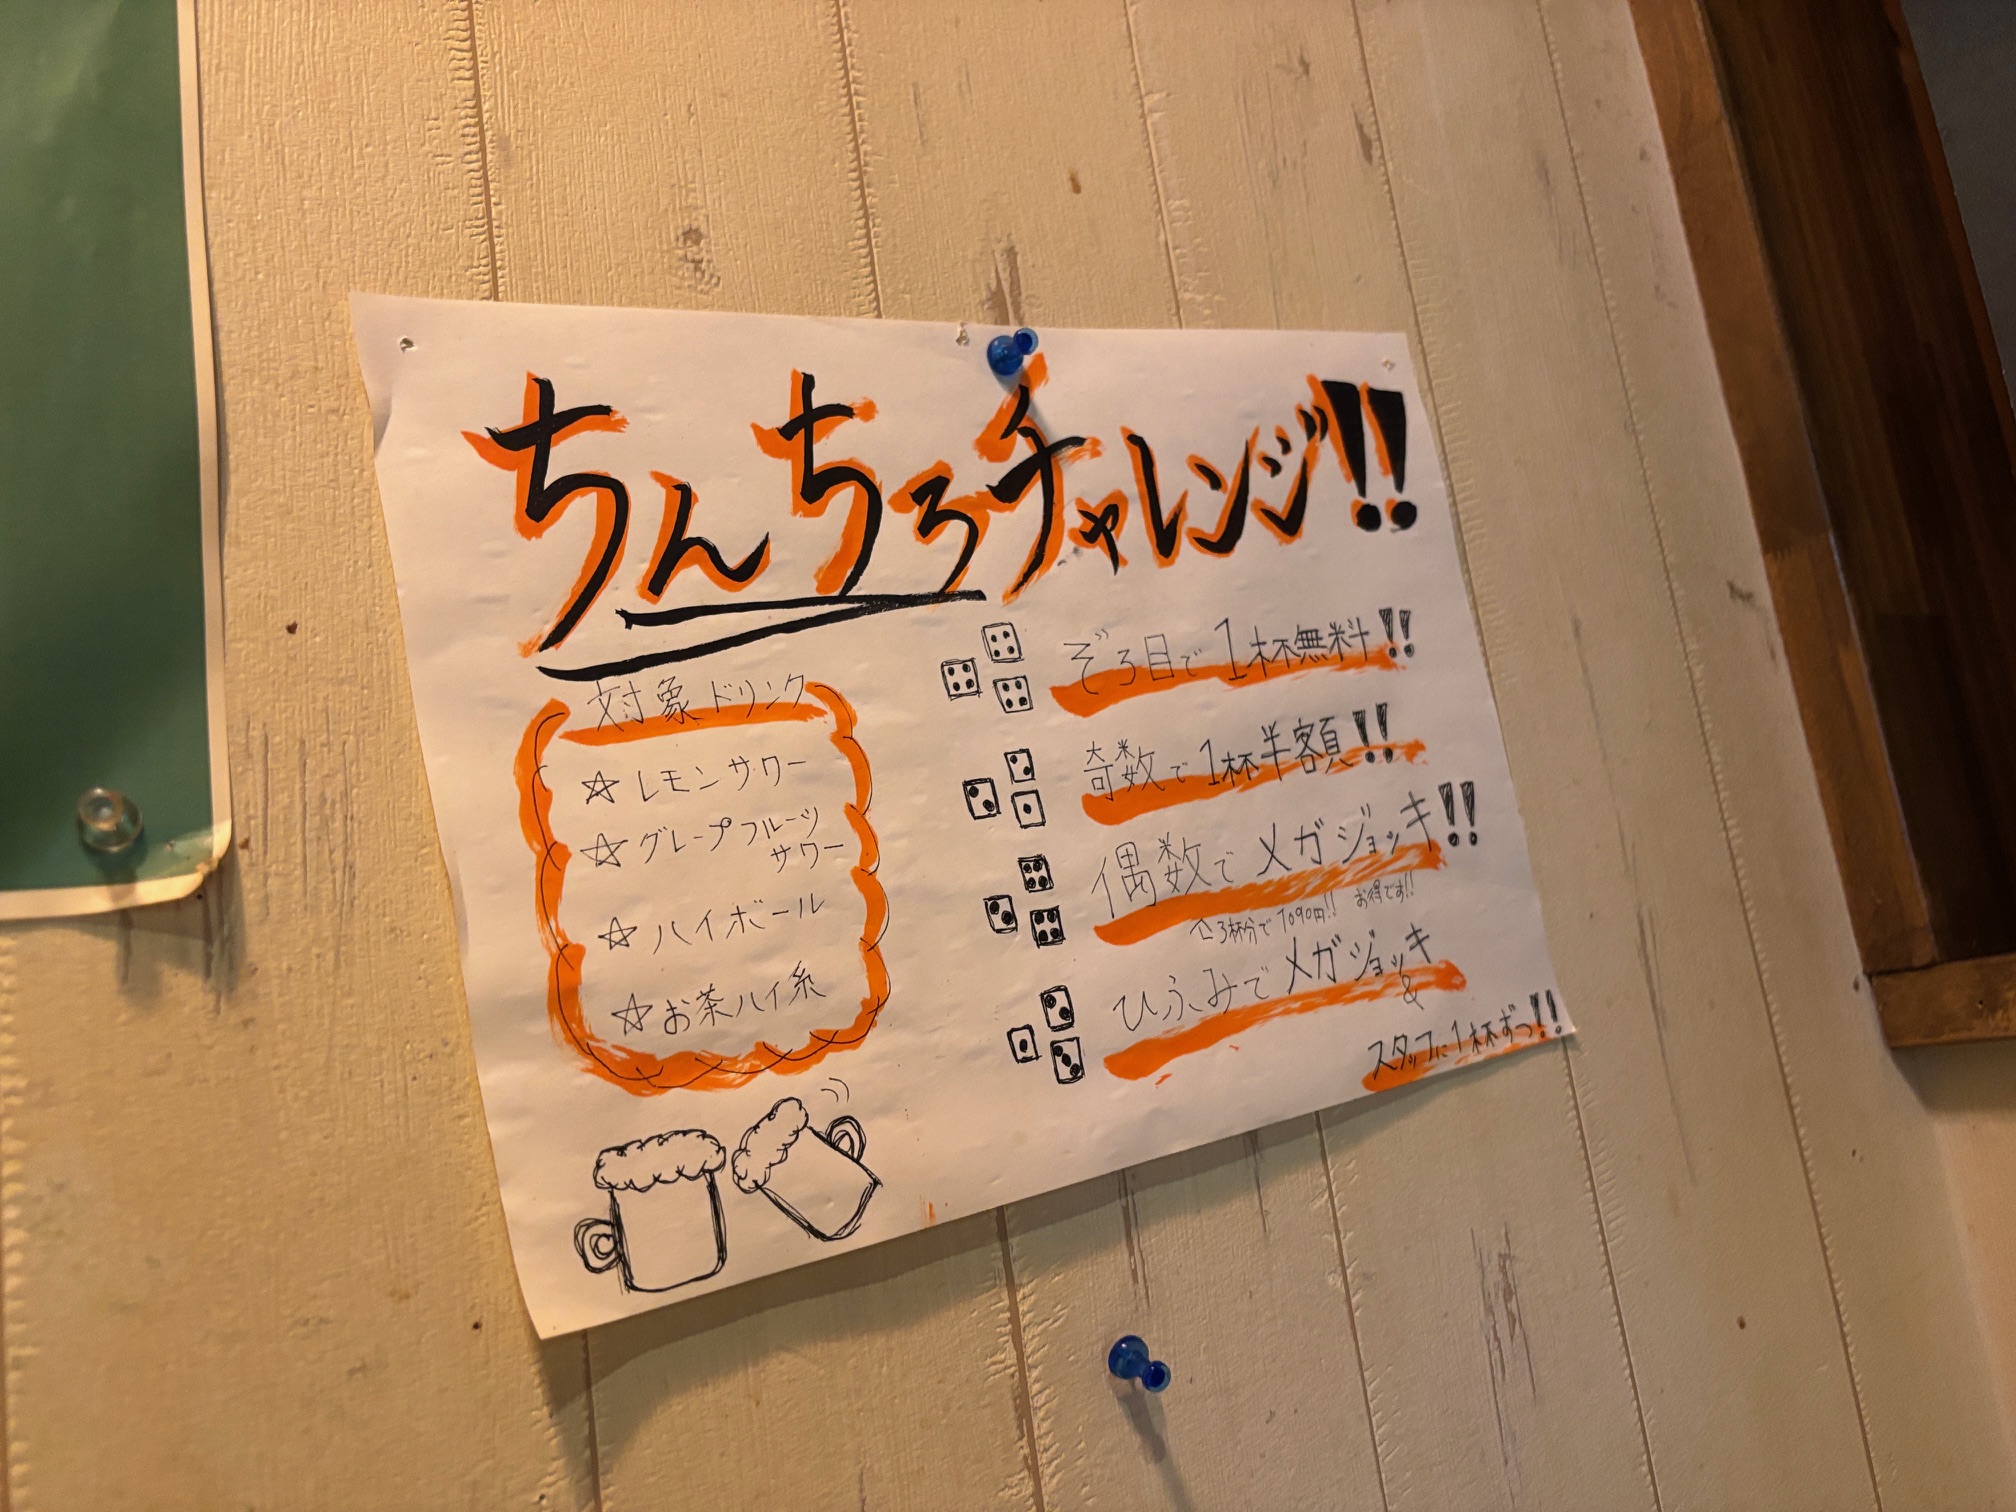 ちんちろチャレンジ!!
対象ドリンク
☆レモンサワー
☆グレープフルーツ
サワー
☆ハイボール
☆お茶ハイ系
ぞろ目で1杯無料!!
奇数で1杯半額!!
偶数でメガジョッキ!!
⇧3杯分で1090円!! お得です!!
ひふみでメガジョッキ
&
スタッフに1杯ずつ!!